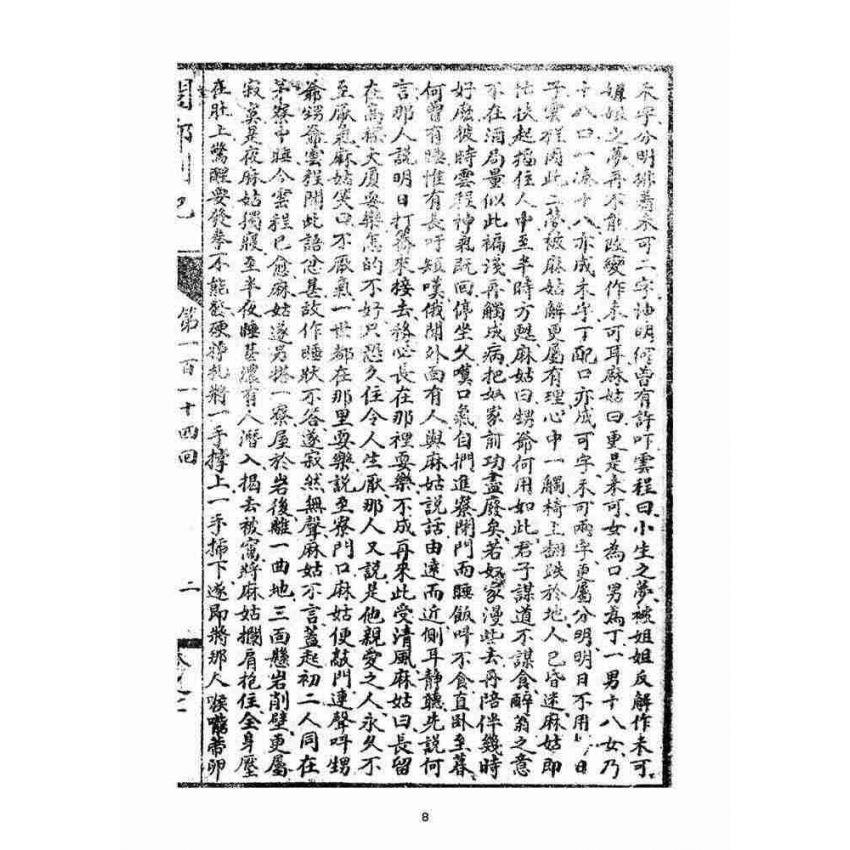 未字分明排着未可二字油明何曾有許吓雲程曰小生之夢被姐姐反解作未可
姐姐之夢再不能改變作未可耳麻姑曰更是未可女為口男為丁一男十八女乃
十八口一湊十八亦成未字丁配口亦成可字未可兩字更屬分明明日不用 日
子雲程因此二夢被麻姑解更屬有理心中一觸椅上翻跌於地人已昏迷麻姑即
忙扶起搯住人中至半時方甦麻姑曰甥爺何用如此君子謀道不謀食醉翁之意
不在酒局量似此褊淺再觸成病把奴家前功盡廢矣若奴家漫些去再陪伴幾時
好麼彼時雲程神氣既回停坐久嘆口氣自捫進寮閉門而睡飯呌不食直卧至暮
何曾有睡惟有長吁短嘆俄聞外面有人與麻姑説話由遠而近側耳靜聽先説何
言那人説明日打轎來接去務必長在那裡耍樂不成再來此受清風麻姑曰長留
在高樓大厦耍樂怎的不好只恐久住令人生厭那人又説是他親愛之人永久不
至厭氣麻姑笑曰不厭氣一世都在那里耍樂説至寮門口麻姑便敲門連聲呌甥
爺甥爺雲程聞此語忿甚故作睡狀不答遂寂然無聲麻姑不言蓋起初二人同在
茅寮中睡今雲程已愈麻姑遂另搭一寮屋於岩後離一曲地三面懸岩削壁更屬
寂寞是夜麻姑獨寢至半夜睡甚濃有人潛入揭去被窩將麻姑攔肩抱住全身壓
在肚上驚醒要發拳不能發硬掙扎將一手撐上一手掃下遂即將那人喉嚨蒂卵
閭 別
第一百一十四回
二
8